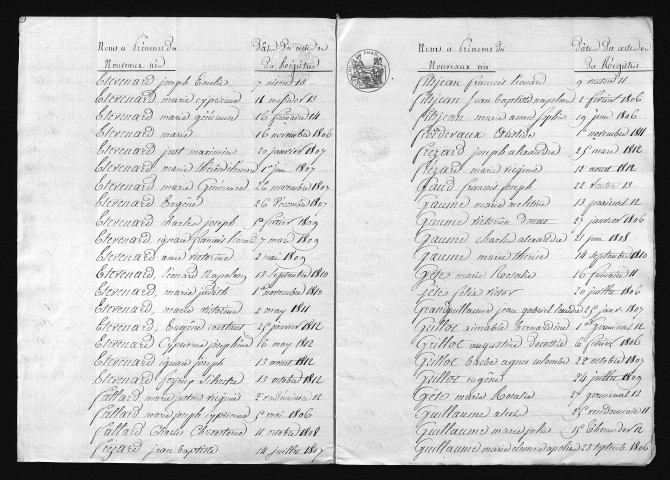 Noms et Prénoms du Date de l'acte ou
Nouveau né du Registre
Etevenard Joseph Emelie 7 nivose 13
Etevenard marie cyprienne 11 messidor 13
Etevenard marie génereuse 16 frimaire 14
Etevenard marie 16 novembre 1806
Etevenard just maximin 20 janvier 1807
Etevenard marie 1er juin 1807
Etevenard marie Généreuse 26 novembre 1807
Etevenard Eugène 26 Décembre 1807
Etevenard charles joseph 1er février 1809
Etevenard ignace françois 7 mars 1809
Etevenard anne victorine 2 mai 1809
Etevenard léonard Napoléon 13 septembre 1810
Etevenard marie judith 1er novembre 1810
Etevenard marie victorine 2 may 1811
Etevenard Eugène constant 25 janvier 1812
Etevenard Cyprienne joséphine 16 may 1812
Etevenard ignace joseph 13 aout 1812
Etevenard Silvestre 13 octobre 1812
Fallard marie justine virginie 12
Fallard marie joseph cyprienne 5 mai 1806
Fallard Charles 11 octobre 1808
Frézard jean baptiste 14 juillet 1807
Noms et Prénoms du Date de l'acte ou
Nouveau né du Registre
Fitsjean françois léonard 11
Fitsjean Jean baptiste napoléon 2 février 1806
Fitsjean marie anne sophie 19 juin 1806
novembre 1811
Frézard joseph alexandre 25 mars 1812
Frézard marie virginie 12 aout 1812
Gaud françois joseph 22 13
Gaume marie melitine 13 prairial 12
Gaume victorien donat 27 janvier 1806
Gaume charles alexandre 21 juin 1808
Gaume marie thérèse 14 septembre 1810
Gête marie Rosalie 16 frimaire 11
félix victor 20 juillet 1806
Grandguillaume jean gabriel 25 1807
Guillot aimable bernardine 1er germinal 12
Guillot augustine dorothée 6 février 1806
Guillot barbe agnès colombe 22 octobre 1807
Guillot eugène 24 juillet 1809
Gête marie Rosalie 27 germinal 13
Guillaume alexis 25 vendemiaire 11
Guillaume marie julie 15 thermidor 12
Guillaume marie éléonore apoline 23 septembre 1806